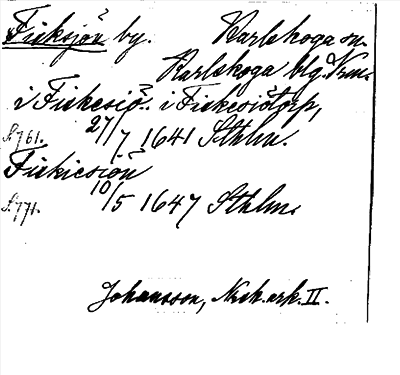 Fisksjön by. Karlskoga sn.
Karlskoga blg. Vrm.
i Fiskesiö.. i Fiskesiötorp,
S. 761. 27/7 1641 Sthlm.
Fiskiesiön
S. 771. 10/5 1647 Sthlm.
Johansson, Nsk. ark. II.